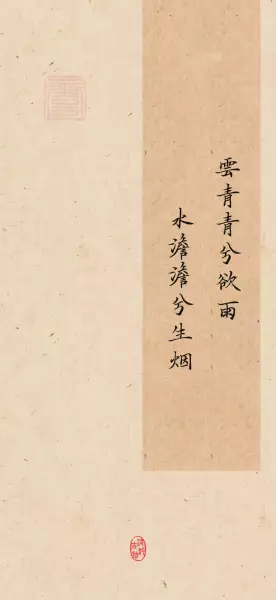 雲青青兮欲雨
水澹澹兮生烟